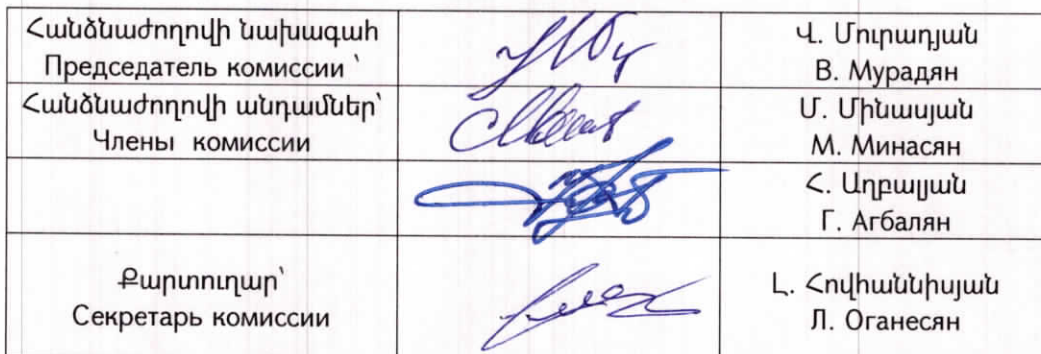 Հանձնաժողովի նախագահ
Председатель комиссии ՝
Վ. Մուրադյան
В. Мурадян
Հանձնաժողովի անդամներ՝
Члены комиссии
Մ. Մինասյան
М. Минасян
Հ. Աղբալյան
Г. Агбалян
Քարտուղար՝
Секретарь комиссии
Լ. Հովհաննիսյան
Л. Оганесян